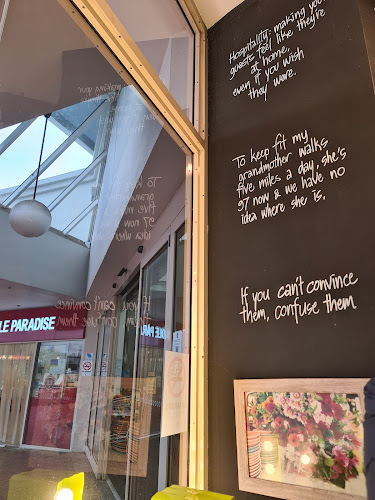 Hospitality: making your
guests feel like they're
at home,
even if you wish
they were.
To keep fit my
grandmother walks
five miles a day, she's
97 now & we have no
idea where she is.
If you can't convince
them, confuse them
LE PARADISE